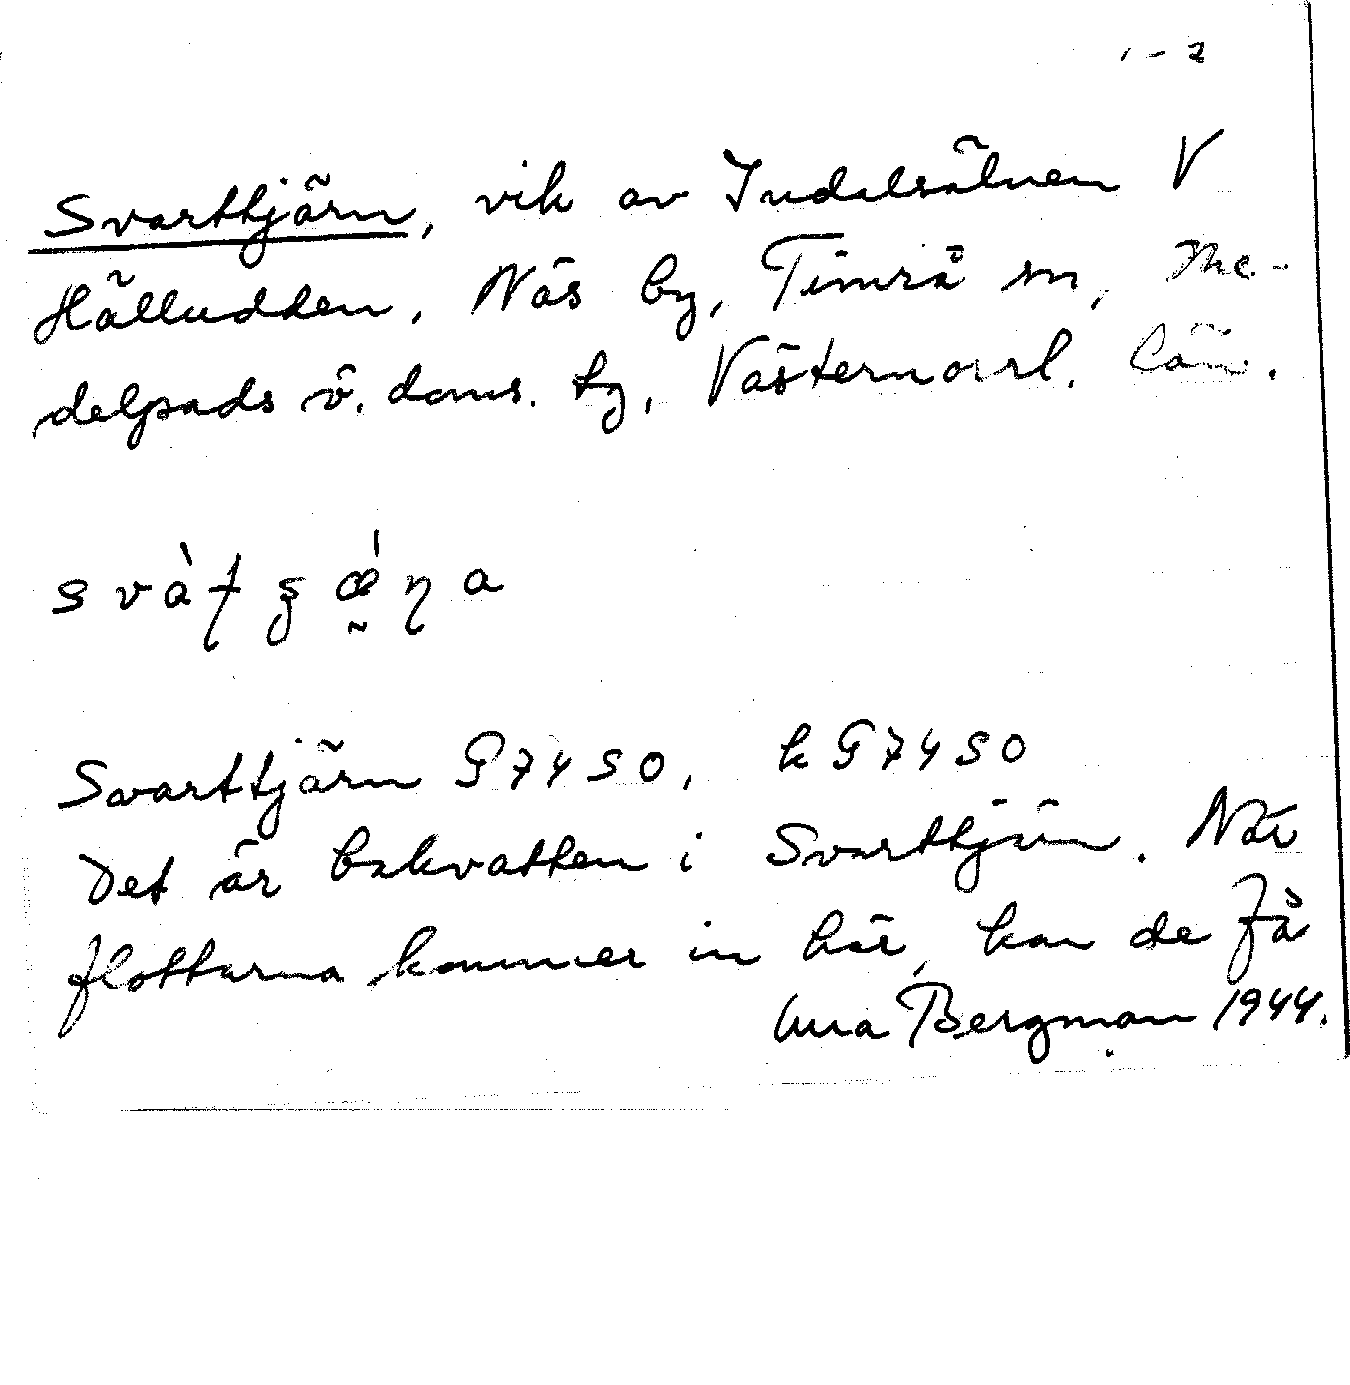 1-2
Svarttjärn, vik av Indalsälven V
Hälludden, Näs by, Timrå sn, Me-
delpads v. doms. tg, Västernorrl. län.
svàƭʂǽ̰ɳa
Svarttjärn G7450, kG7450
Det är bakvatten i Svarttjärn. När
flottarna kommer in här, kan de få
Anna Bergman 1944.